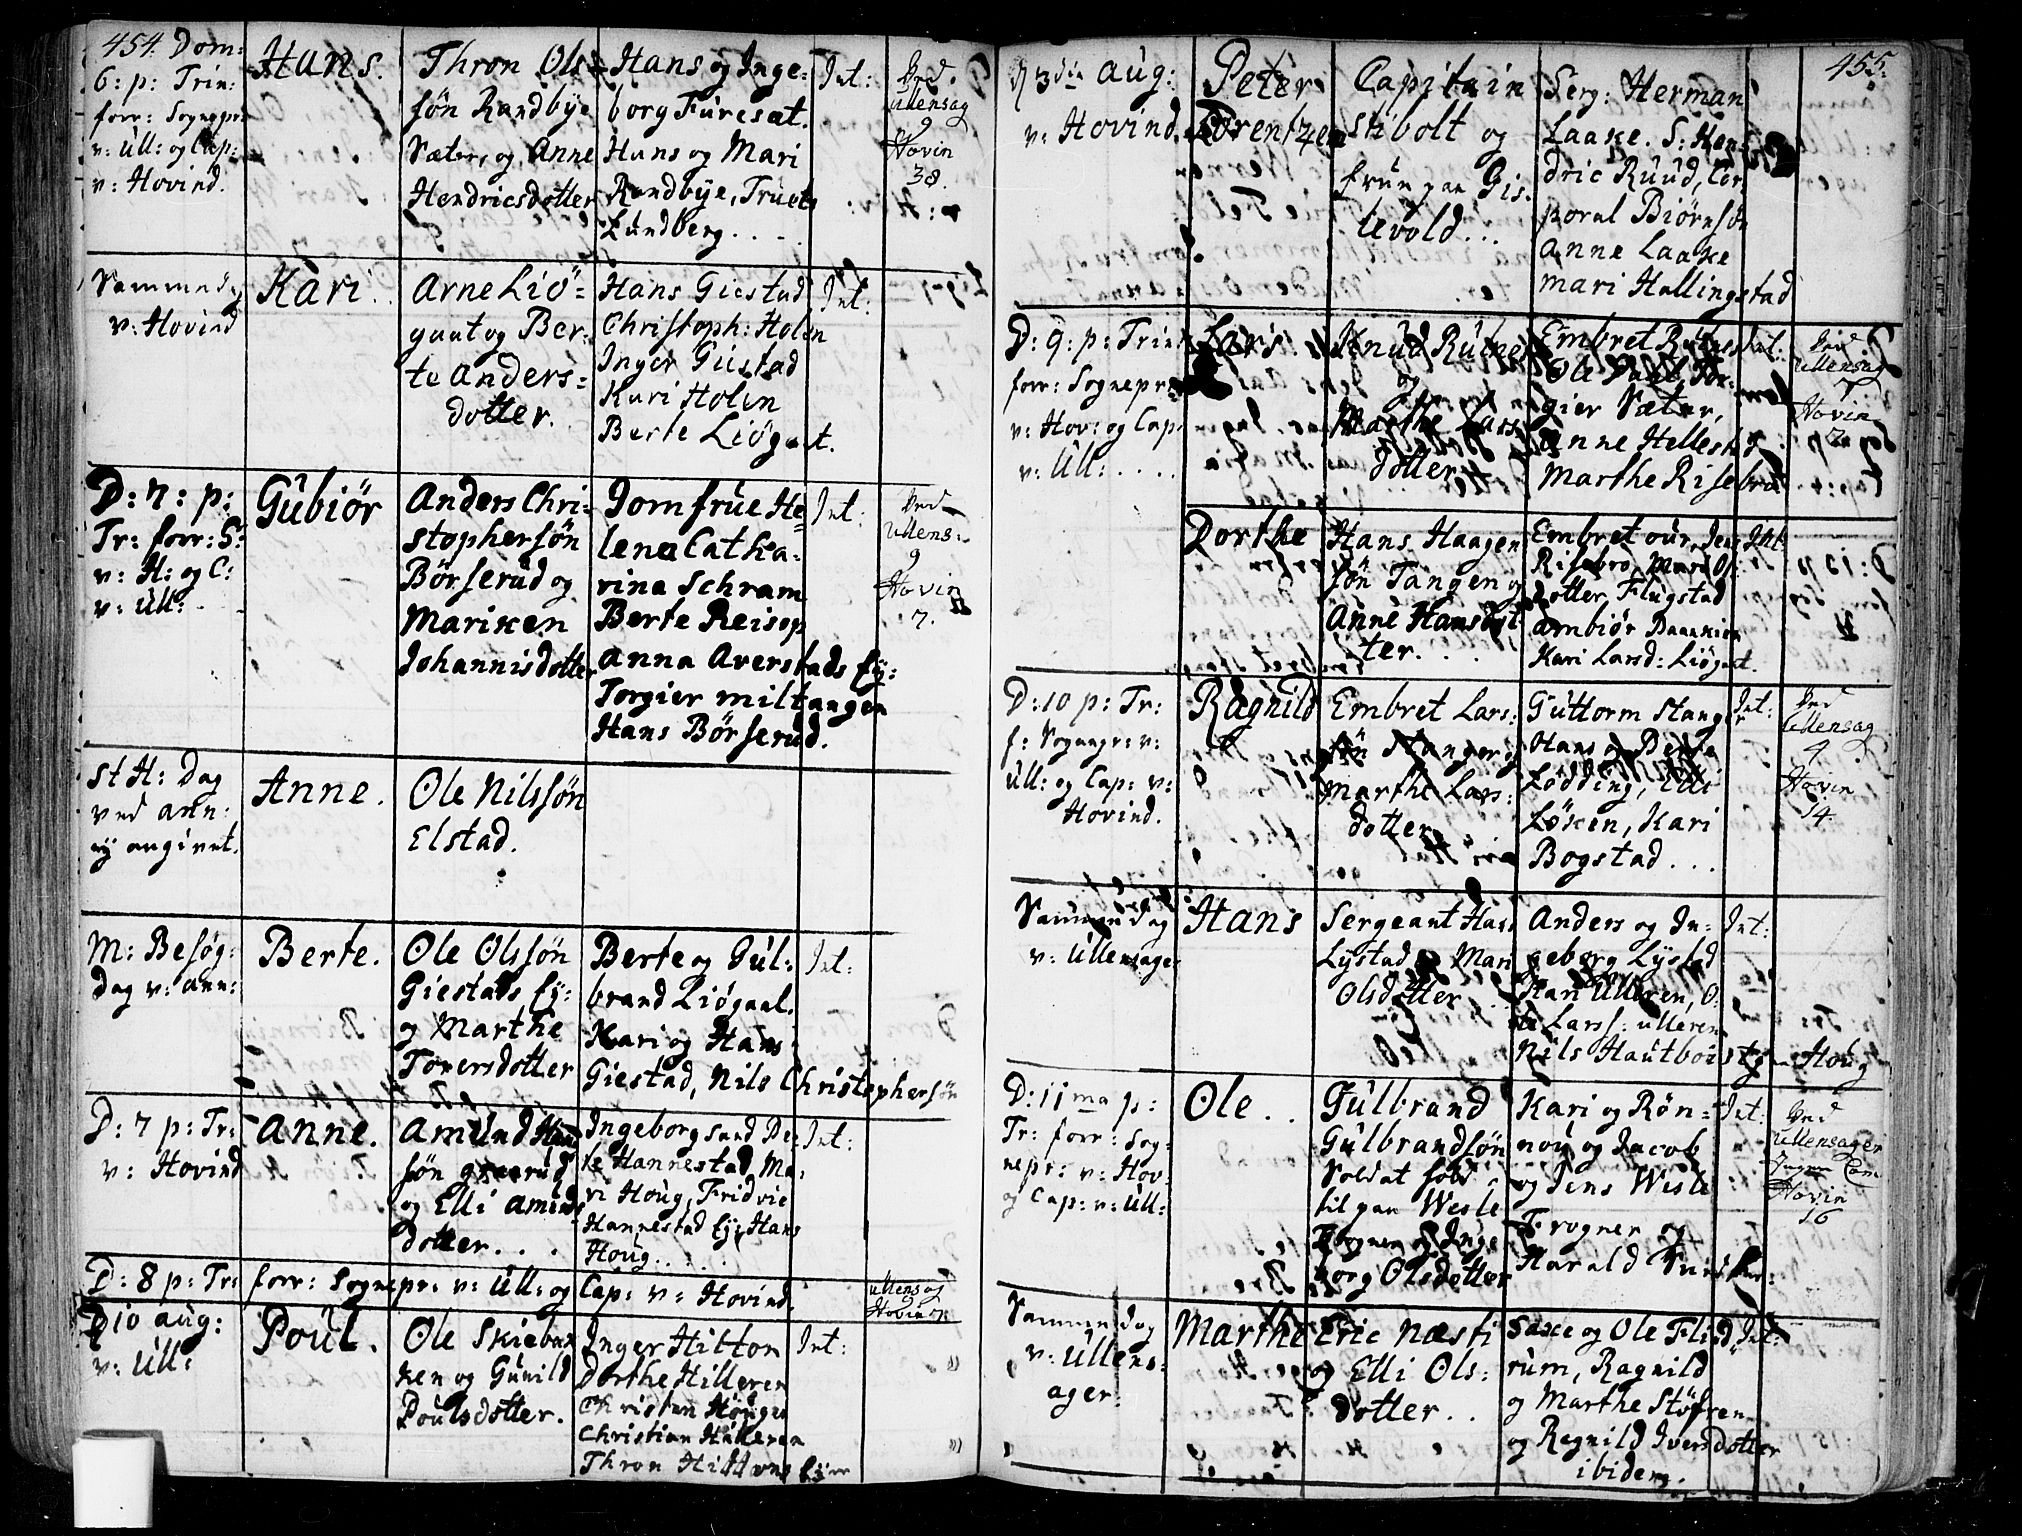 454. Dom:
6: p: Trin:
forr: Sognepr:
v: Ull: og Cap:
v: Hovind.
Hans.
Thron Ols=
søn Randbye
Sæter, og Anne
Hendricsdotter
Hans og Inge=
borg Furesat.
Hans og Mari
Randbye, Truets
Lundberg . . . .
Int:
Ved.
Ullensag
9
Hovin
38.
Sammendag
v: Hovind
Kari.
Arne Liø=
gaut og Ber=
te Anders=
dotter.
Hans Giestad
Christoph: Holen
Inger Giestad
Kari Holen
Berte Liøgaut.
Int:
D: 7: p:
Tr: forr: S:
v: H: og C:
v: Ull:
Gubiør
Anders Chri=
stophersøn
Børserud og
Mariken
Johannisdotter
Jomfrue He=
lena Catha=
rina Schram
Berte Reisop
Anna Averstads Ey:
Torgier Miltangen
Hans Børserud.
Int:
Ved
Ullens:
9
Hovin
7.
St H: Dag
ved ann:
ey angivet.
Anne.
Ole Nilssøn
Elstad.
M: Besøg:
Dag v: ann:
Berte.
Ole Olssøn
Giestads Ey:
og Marthe
Toversdotter
Berte og Gul:
brand Liøgaal.
Kari og Hans
Giestad, Nils Christophersøn
Int:
D: 7 p: Tr:
v: Hovind
Anne.
Amund
søn
og Elli Amunds
dotter. . .
Ingeborg Sand Ber
te Hannestad, Ma=
ri Houg, Fridric
Hannestad Ey, Hans
Houg. . . .
Int:
D: 8 p: Tr: forr: Sognepr: v: Ull: og Cap: v: Hovind.
Ullensag
Hovin
D 10 Aug:
v: Ull:
Poul.
Ole Skiebak
ken og Gunild
Poulsdotter.
Inger Hitton
Dorthe Hilleren
Christen Houger
Christian Hilleren
Thron
Int:
455.
D 3die Aug:
v: Hovind.
Peter
Lorentzen
Capitain
Stibolt og
frue paa Gis=
levold . . .
Serg: Herman
Laake. S: Hen=
dric Ruud, Cor
poral Biørnsøn
Anne Laake
Mari Hallingstad
D: 9: p: Trin:
forr: Sognepr:
v: Hov: og Cap:
v: Ull: . . . .
Lars.
Knud Rutnes
og
Marthe Lars
dotter
Embret Rutnes
Ole
gier Sæter,
Anne Hellest og
Marthe Risebroe
Int:
Ved
Ullensag
7
Hovin
7
Dorthe
Hans Haagen
søn Tangen og
Anne Hansdot
ter. . .
Embret Our, Jens
Risebro, Mari Ols
dotter Flugstad
Ambiør
Kari Larsd: Liøgaut.
Int:
D: 10 p: Tr:
f: Sognepr: v:
Ull: og Cap: v:
Hovind.
Ragnild
Embret Lars:
søn Stanger og
Marthe Lars:
dotter
Guttorm Stanger
Hans og Berte
Lødding, Elli
Løken, Kari
Bogstad . . .
Int:
Ved
Ullensag
4
Hovin
14
Sammendag
v: Ullensager
Hans
Sergeant Hans
Lystad og Mari
Olsdotter
Anders og In=
geborg Lystad
Kari Ulleren, O=
le Larss: Ulleren
Nils Hautboist Houg
Int:
D: 11ma p:
Tr: forr: Sog=
nepr: v: Hov
og Cap: v: Ull:
Ole.
Gulbrand
Gulbrandsøn
Soldat født
til paa Wesle
Frogner og Inge
borg Olsdotter
Kari og Røn=
nou og Jacob
og Jens Wesle
Frogner og
Harald
Int:
Ved
Ullensager
Ingen Com
Hovin
16
Sammendag
v: Ullens=
ager:
Marthe
Eric Næsti
og Elli Ols:
dotter. .
Saxe og Ole Flind
rum, Ragnild
og Marthe Støfren
og Regnild Iversdotter
ibidem.
Int: